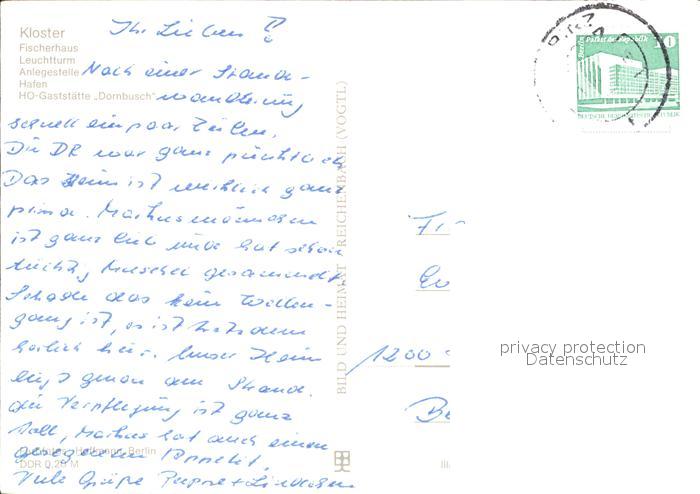 Kloster
Fischerhaus
Leuchtturm
Anlegestelle
Hafen
HO-Gaststätte „Dornbusch"
Ihr Lieben
Nach einer Strand-
wanderung
schnell ein paar Zeilen.
Die DR war ganz pünktlich
Das Heim ist wirklich ganz
prima. Markusmännchen
ist ganz lieb und hat schon
tüchtig Muscheln gesammelt
Schade das kein Wellen-
gang ist, es ist trotzdem
herrlich hier. Unser Heim
liegt genau am Strand.
die Verpflegung ist ganz
toll, Markus hat auch einen
gesegneten Appetit.
Viele Grüße
Fotos: Hoffmann, Berlin
DDR 0,20 M
BILD UND HEIMAT REICHENBACH (VOGTL)
Berlin Palast der Republik
10
DEUTSCHE DEMOKRATISCHE REPUBLIK
1200
privacy protection
Datenschutz